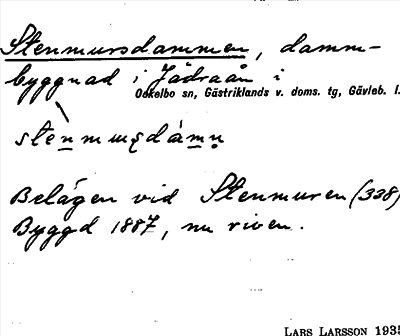 Stenmursdammen, damm-
byggnad i Jädraån i
Ockelbo sn, Gästriklands v. doms. tg, Gävleb. l.
stenmuṣdàmn
Belägen vid Stenmuren (338)
Byggd 1887, nu riven.
LARS LARSSON 1935